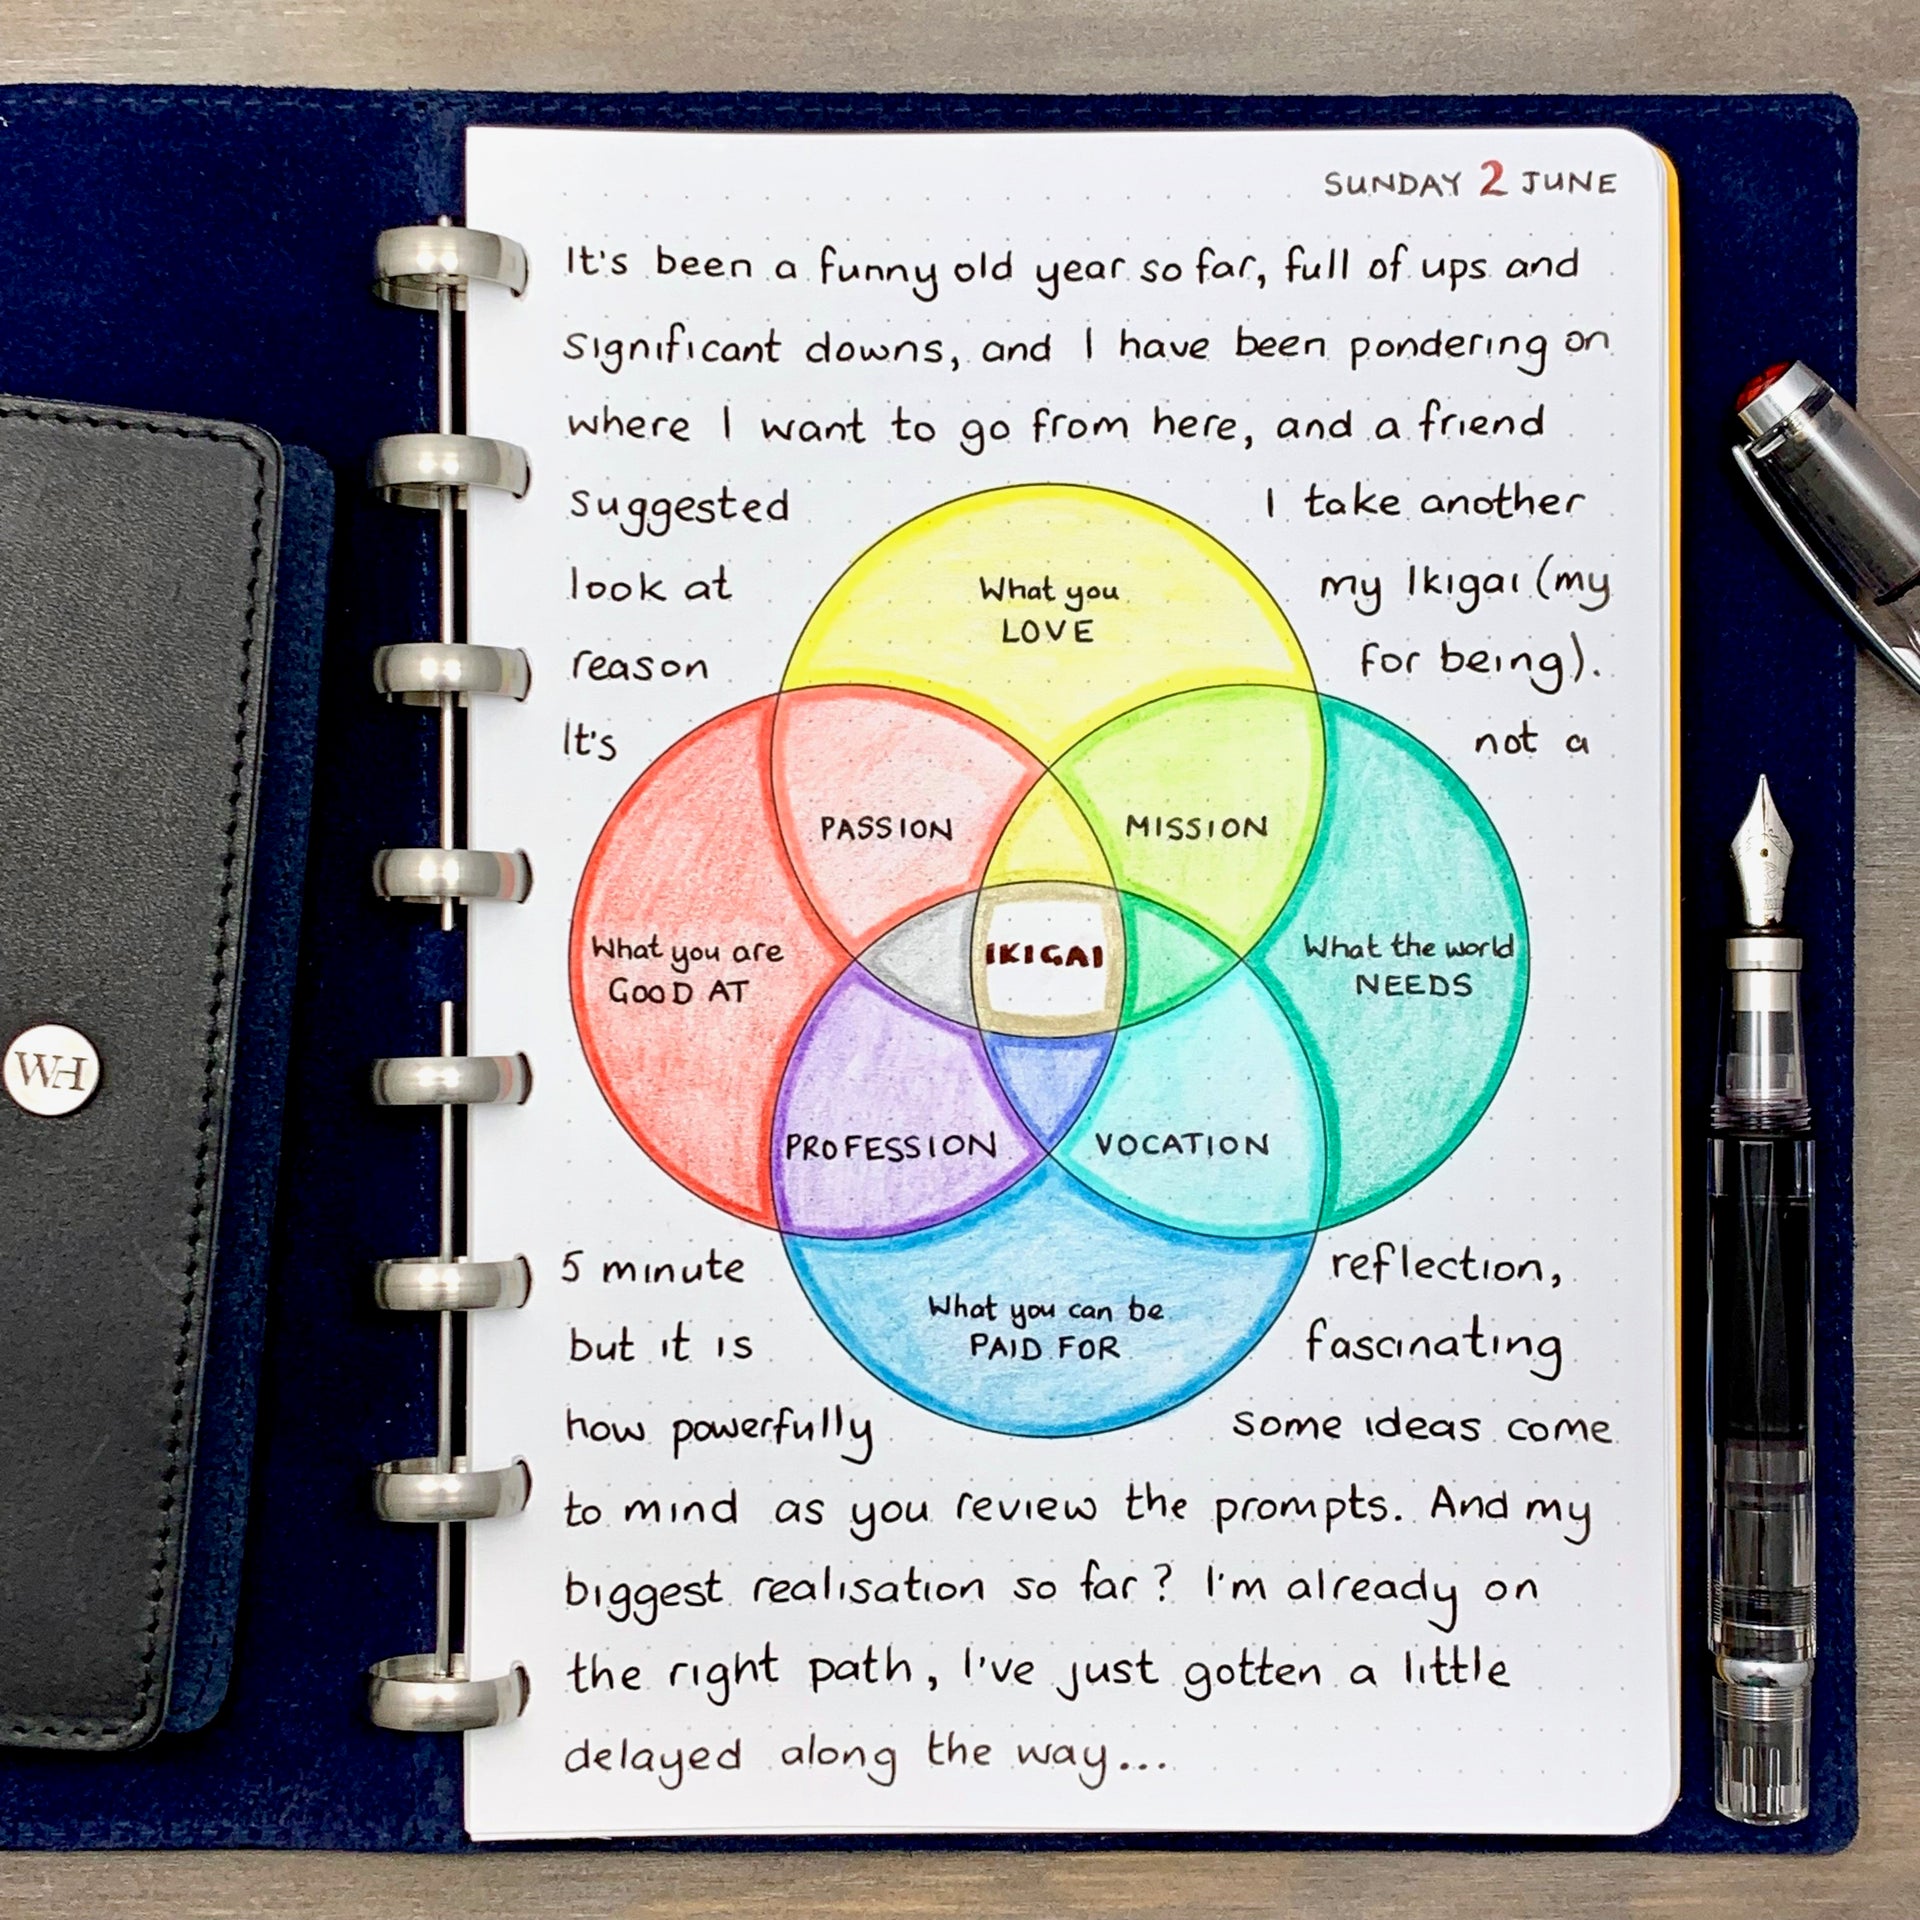 SUNDAY 2 JUNE
It's been a funny old year so far, full of ups and
significant downs, and I have been pondering on
where I want to go from here, and a friend
suggested I take another
look at my Ikigai (my
reason for being).
It's not a
What you
LOVE
PASSION
MISSION
What you are
GOOD AT
IKIGAI
What the world
NEEDS
PROFESSION
VOCATION
What you can be
PAID FOR
5 minute reflection,
but it is fascinating
how powerfully some ideas come
to mind as you review the prompts. And my
biggest realisation so far? I'm already on
the right path, I've just gotten a little
delayed along the way...
WH